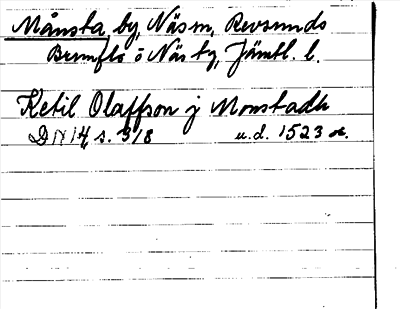 Månsta, by, Näs sn, Revsunds
Brunflo o Näs tg, Jämtl. l.
Ketil Olaffson j Monstadh
DN 14, s. 318 u.d. 1523 or.